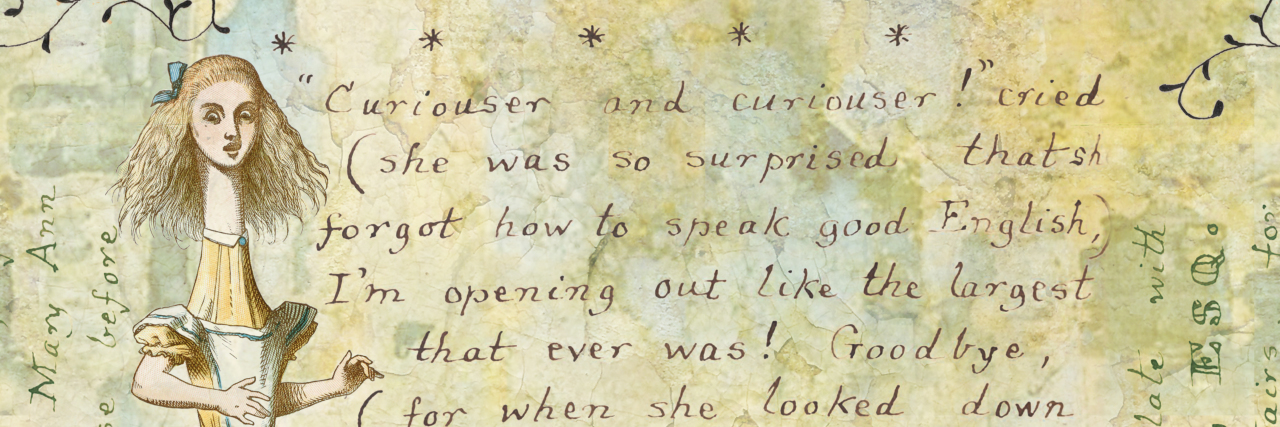 * * * * *
“Curiouser and curiouser!” cried
(she was so surprised that sh
forgot how to speak good English,)
I'm opening out like the largest
that ever was! Goodbye,
(for when she looked down
Mary Ann
se before
late with
ESQ.
airs for: